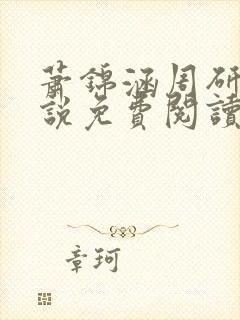 蕭錦涵周研
說免費閱讀
章珂